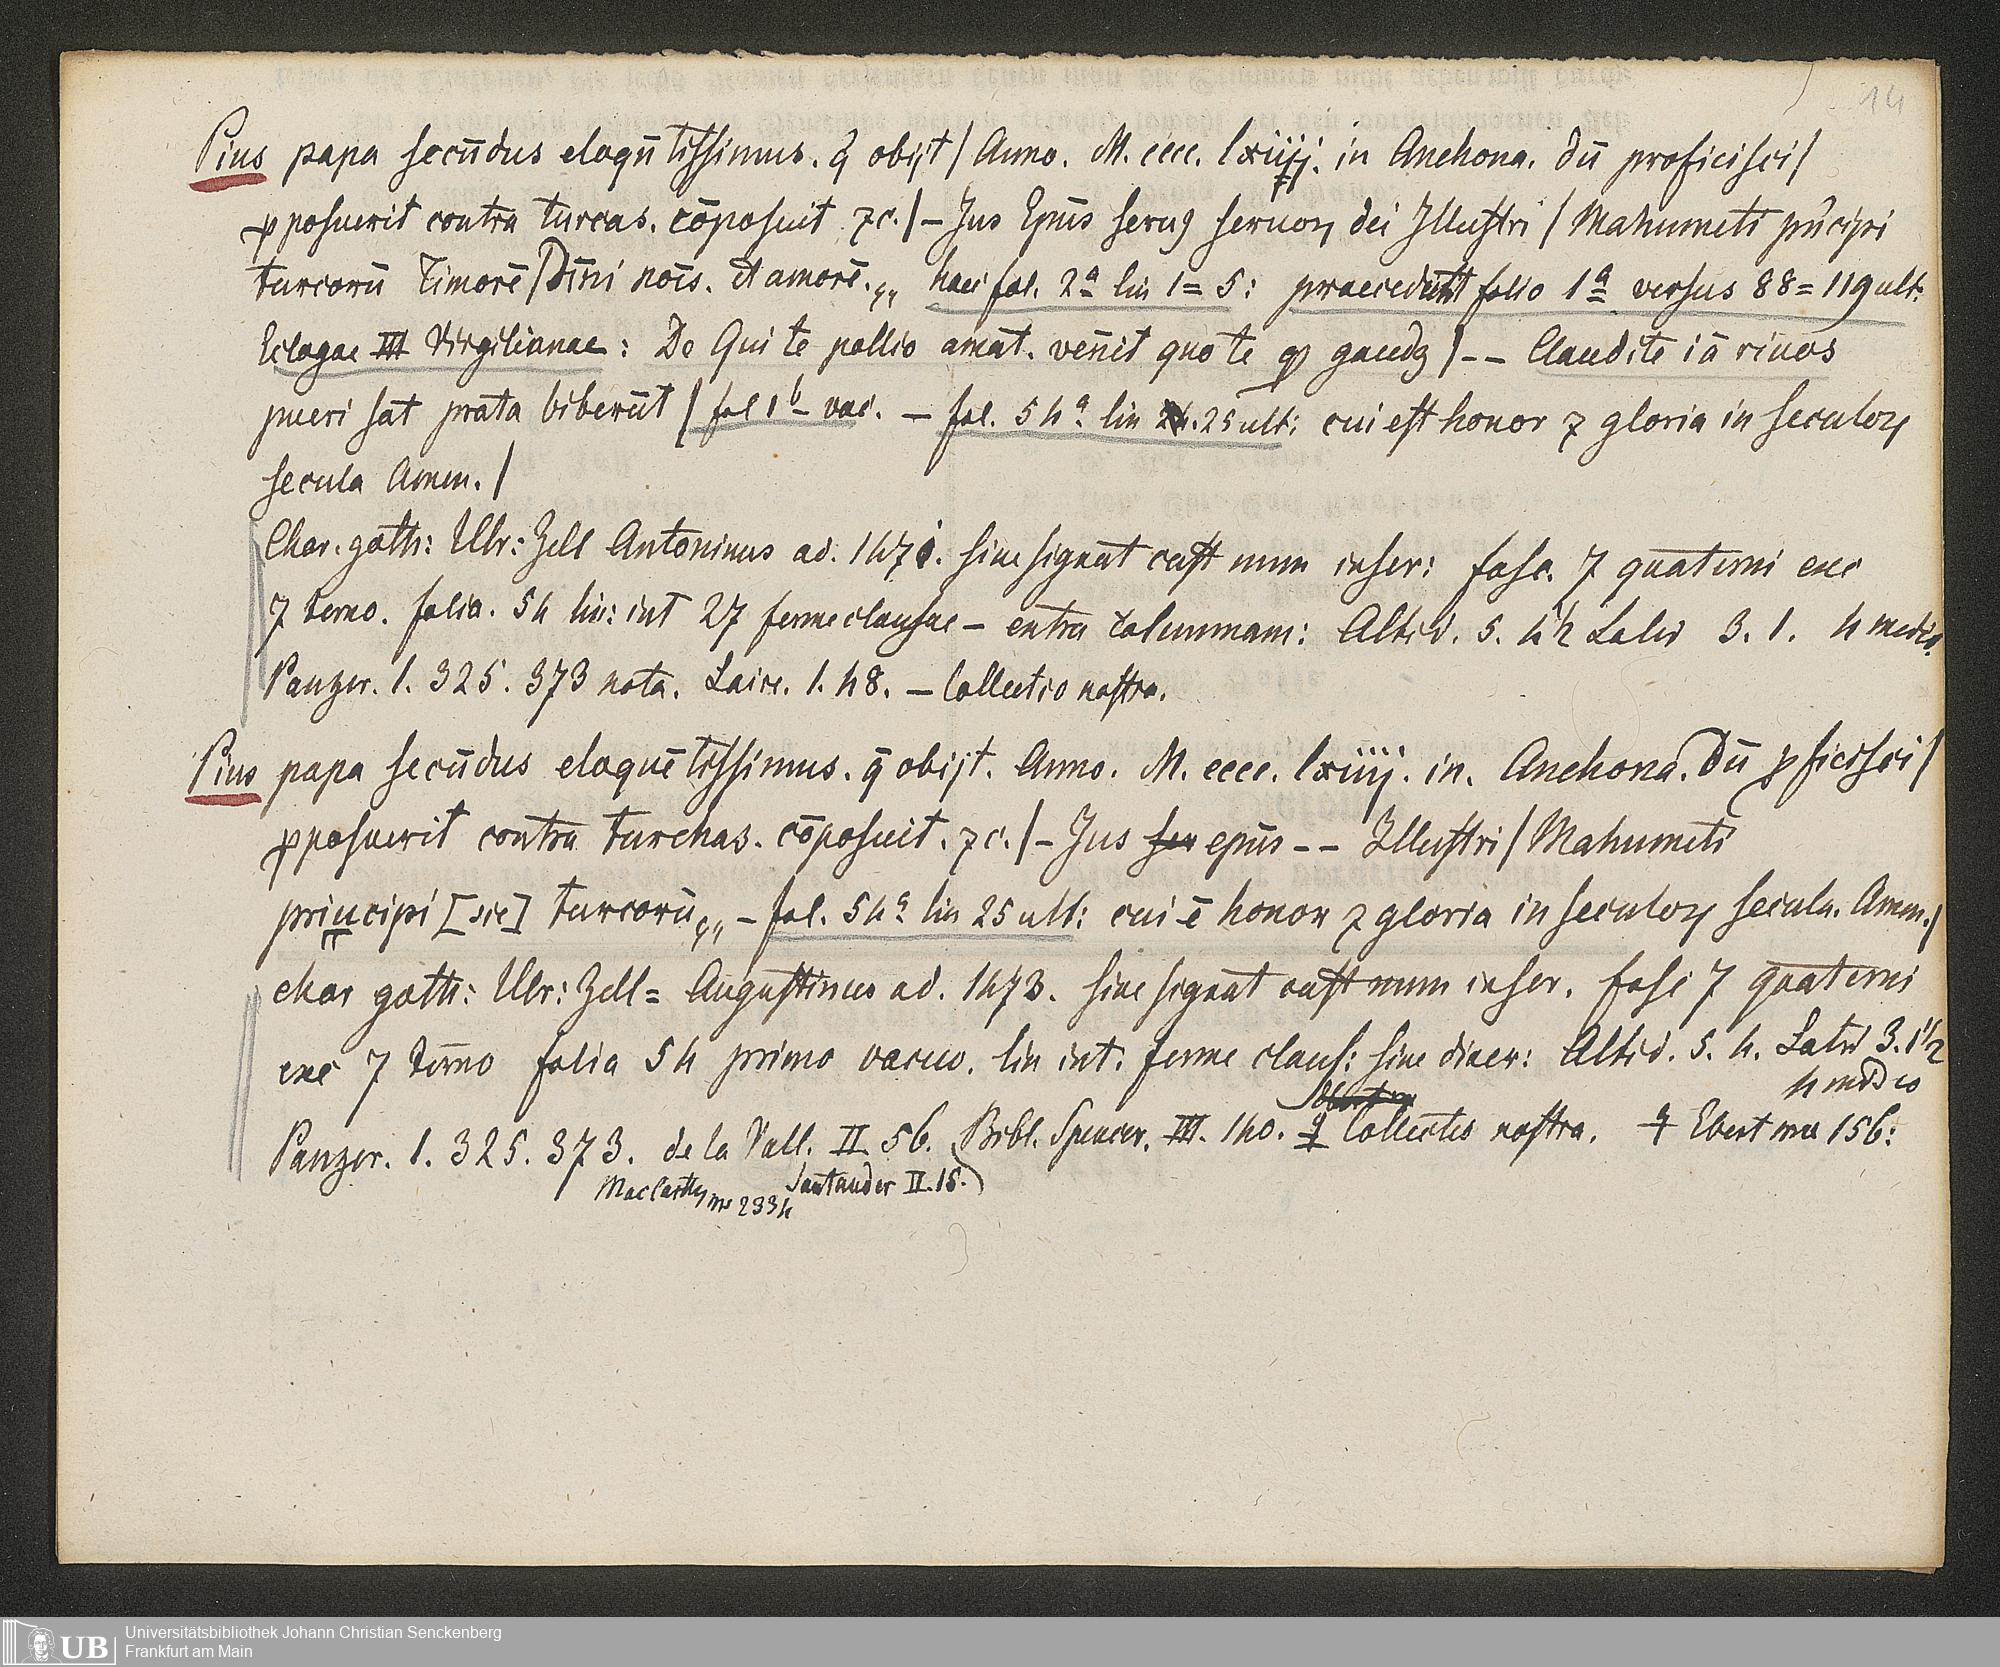 14
Pius papa secūdus eloqūtissimus. q̄ obijt / Anno. M. cccc. lxiiij. in Anchona. dū proficisci /
ꝓposuerit contra turcas. cōposuit ꝛc. / – Jus Epūs seruꝰ seruoꝝ dei Illustri / Mahumeti pn̄cipi
turcorū Timorē / Diīni nōis. et amorē.„ haec fol. 2ª lin 1 = 5: praecedunt folio 1ª versus 88 = 119 ult:
Eclogae III Virgilianae: De Qui te pollio amat. vēnit quo te qꝫ gaudꝫ / – – Claudite iā riuos
pueri sat prata biberūt / fol 1ᵇ vac. – fol. 54ª lin 25 ult: cui est honor ⁊ gloria in seculoꝝ
secula Amen. /
Char. goth: Ulr: Zell Antoninus ad. 1470. sine signat cust num inser: fasc. 7 quaterni exc
7 terno. folia. 54 lin: int 27 ferme clausae – extra columnam: Altid. 5. 4½ Latid 3. 1. 4 medio.
Panzer. 1. 325. 373 nota. Laire. 1. 48. – Collectio nostra.
Pius papa secūdus eloquētissimus. q̄ obijt. Anno. M. cccc. lxiiij. in. Anchona. dū ꝓficisci /
ꝓposuerit contra turchas. cōposuit. ꝛc. / – Jus epūs – – Illustri / Mahumeti
priucipi [sic] turcorū„ – fol. 54ª lin 25 ult: cui ē honor ⁊ gloria in seculoꝝ secula. Amen. /
char goth: Ulr: Zell = Augustinus ad. 1473. sine signat cust num inser. fasc 7 quaterni
exc 7 terno folia 54 primo vacuo. lin int. ferme claus: sine diver: Altid. 5. 4. Latid 3. 1½
4 medio
Panzer. 1. 325. 373. de la Vall. II. 56. Bibl. Spencer. III. 140. Collectio nostra. Ebert 156:
MacCarthy nr 2334 Santander II. 15.
UB Universitätsbibliothek Johann Christian Senckenberg
Frankfurt am Main